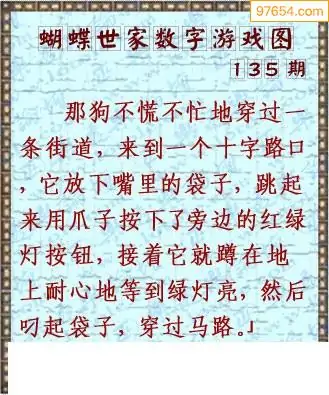 97654.com
蝴蝶世家数字游戏图
135期
那狗不慌不忙地穿过一
条街道，来到一个十字路口
，它放下嘴里的袋子，跳起
来用爪子按下了旁边的红绿
灯按钮，接着它就蹲在地
上耐心地等到绿灯亮，然后
叼起袋子，穿过马路。」